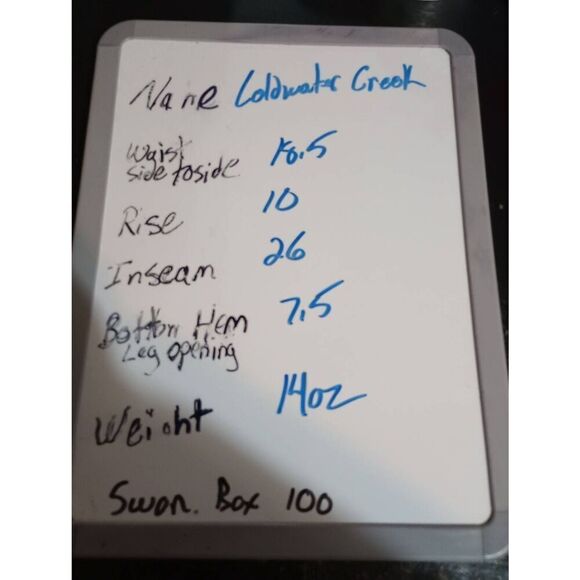 Name Coldwater Creek
Waist 18.5
side to side
Rise 10
Inseam 26
Bottom Hem 7.5
Leg opening
Weight 14oz
Swon. Box 100